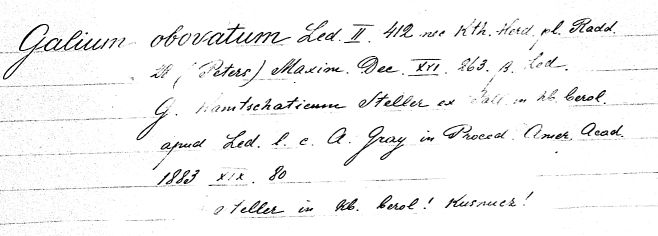 Galium obovatum Led. II. 412 nec Kth. Herd. pl. Radd.
(Peters) Maxim. Dec. XVI. 263. β. Led.
G. Kamtschaticum Steller ex Pall. in hb. berol.
apud Led. l. c. A. Gray in Proced. Amer. Acad.
1883 XIX. 80
Steller in hb. berol!